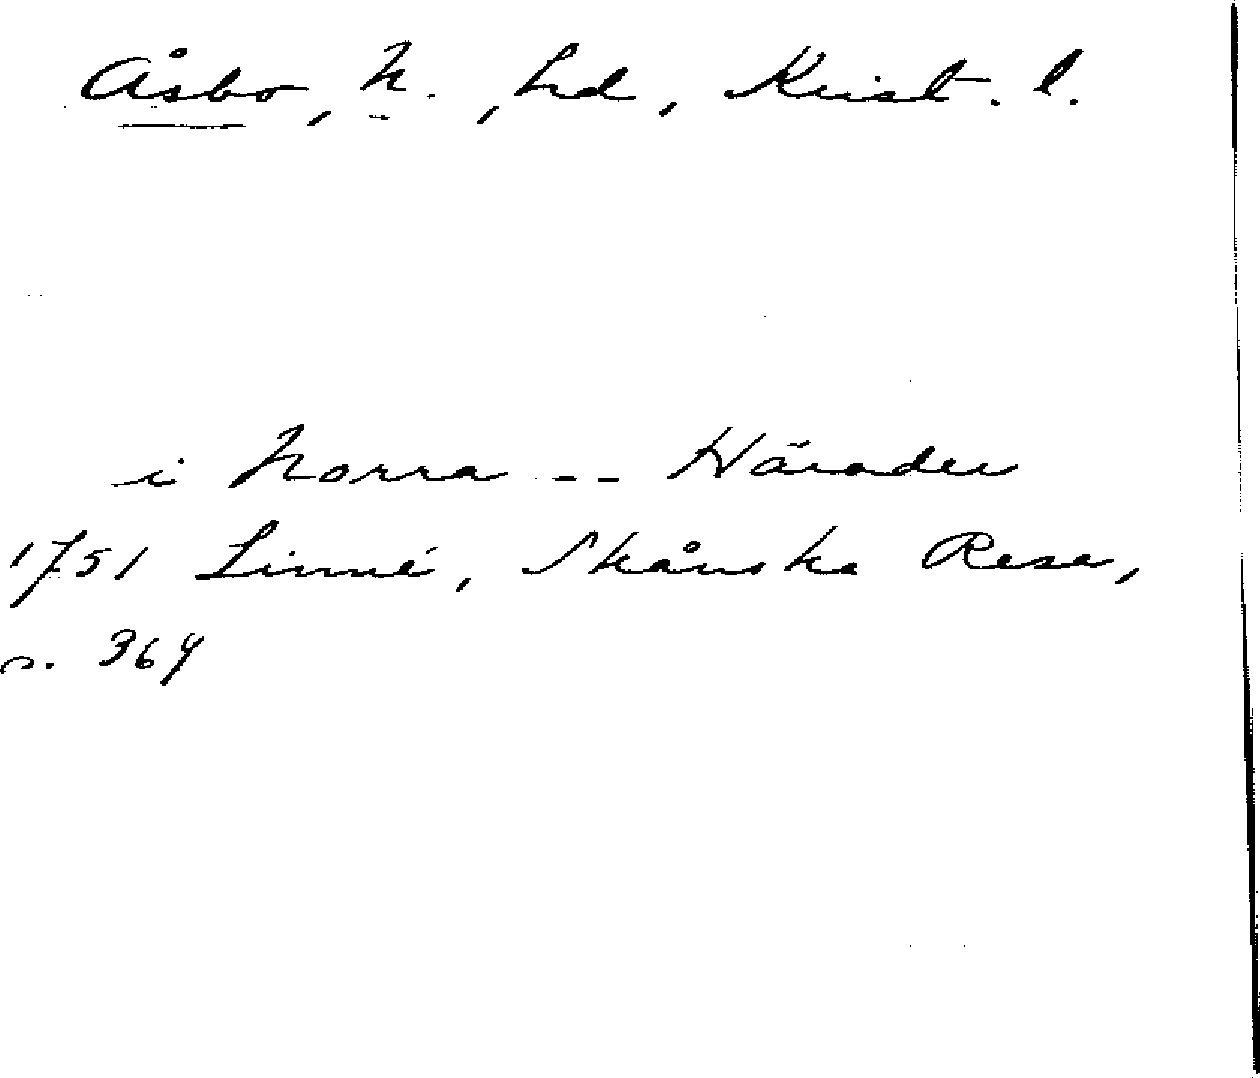 Åsbo, N., hd, Krist. l.
i Norra -- Häraden
1751 Linné, Skånska Resa,
s. 369